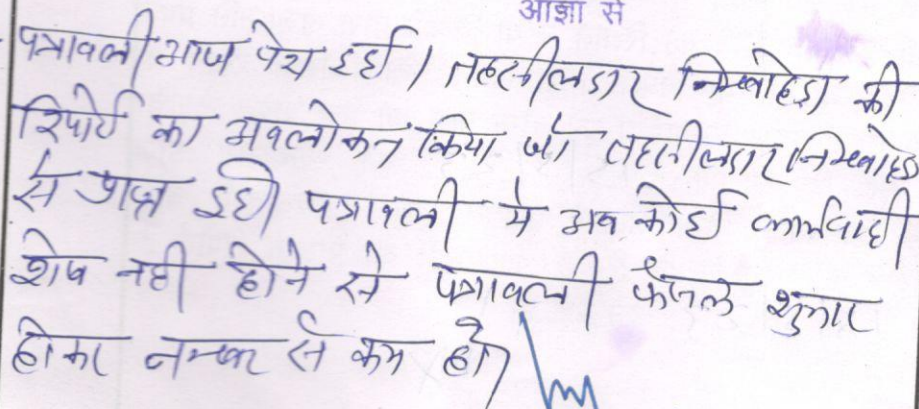 आज्ञा से
पत्रावली आज पेश हुई। तहसीलदार निम्बाहेडा की
रिपोर्ट का अवलोकन किया जो तहसीलदार निम्बाहेडा
से प्राप्त हुई। पत्रावली मे अब कोई कार्यवाही
शेष नही होने से पत्रावली फैसल शुमार
होकर नम्बर से कम हो।